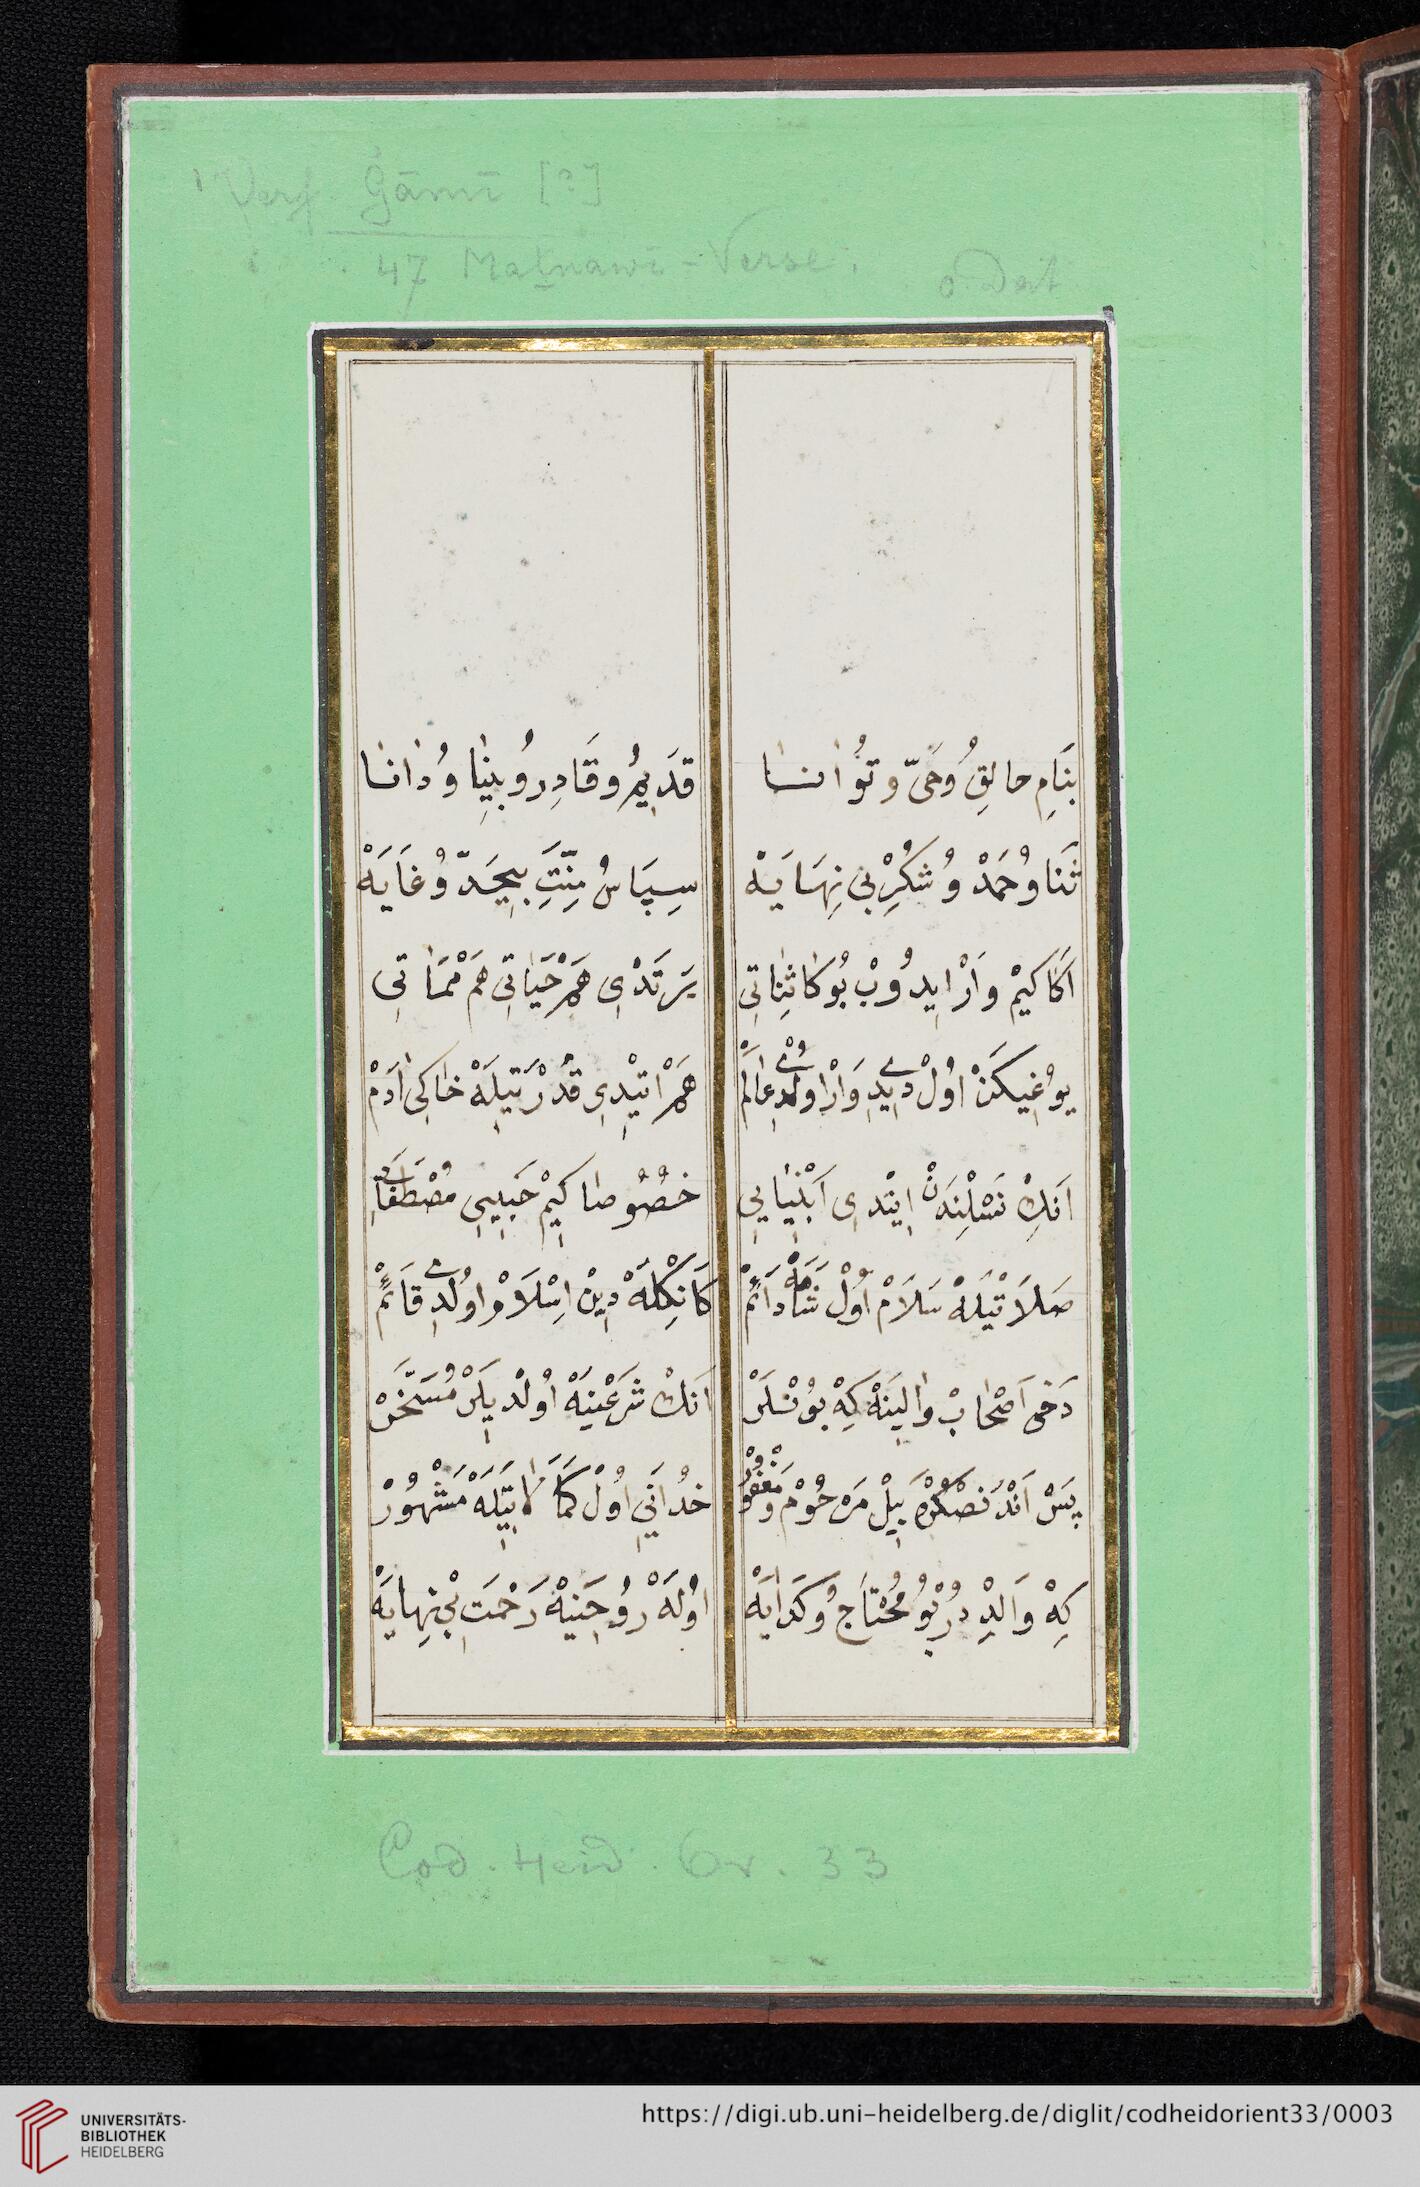 Verf. Ǧāmī [?]
47 Maṯnawī-Verse.
o. Dat
بنَامِ حالِقُ وحَىّ و تُوانا
قدَيِمُ وقَادِر وُبينِا وُ دانا
ثَنا وُحَمْدْ وُ شكُرِْ بى نِهَايَهْ
سِپَاسُ مِنّتِ بيِحَدّ وُغَايَهْ
اَكَا كيِمْ وَارْ ايِدُوبْ بُو كائِناتى
يَرتَدْىِ هَمْ حَيَاتِى هَمْ مَمَاتى
يوُغِيكَنْ اوُلْ دِيدِ وَارْ اولْدِ عالَمْ
هَمْ اتيْدِى قدُرْتَيِلَهْ خاكِى ادَمْ
اَنكِْ نَسْلِنْدَنْ ايِتْدىِ اَنْبِيَايىِ
خصُوُصا كيِمْ حَبيِبىِ مُصْطَفَايىِ
صَلاَتْيَلَهْ سَلاَمْ اوُلْ شَاهَهْ دَائِمْ
كَانكِْلَهْ ديِنْ اِسْلاَمْ اوُلْدِى قَائِمْ
دَخى اَصْحابْ والِينَهْ كِهْ بوُنْلَرْ
اَنكْ شَرَعْينَهْ اوُلْديِلَرْ مُسَخَّرْ
پَسْ اَنْدَنصْكُرْهَ بيِلْ مَرحُومْ وَمَغْفُورْ
خدُانىِ اوُلْ كَمَالاتيِلَهْ مَشْهُورْ
كِهْ وَالدِْ دُرْ بوُ مُحْتاَجِ وُ كَدَايَهْ
اوُلَهْ رُوحِنيَهْ رَحْمَتِ بىْ نِهايَهْ
Cod. Heid. Or. 33
UNIVERSITÄTS-
BIBLIOTHEK
HEIDELBERG
https://digi.ub.uni-heidelberg.de/diglit/codheidorient33/0003